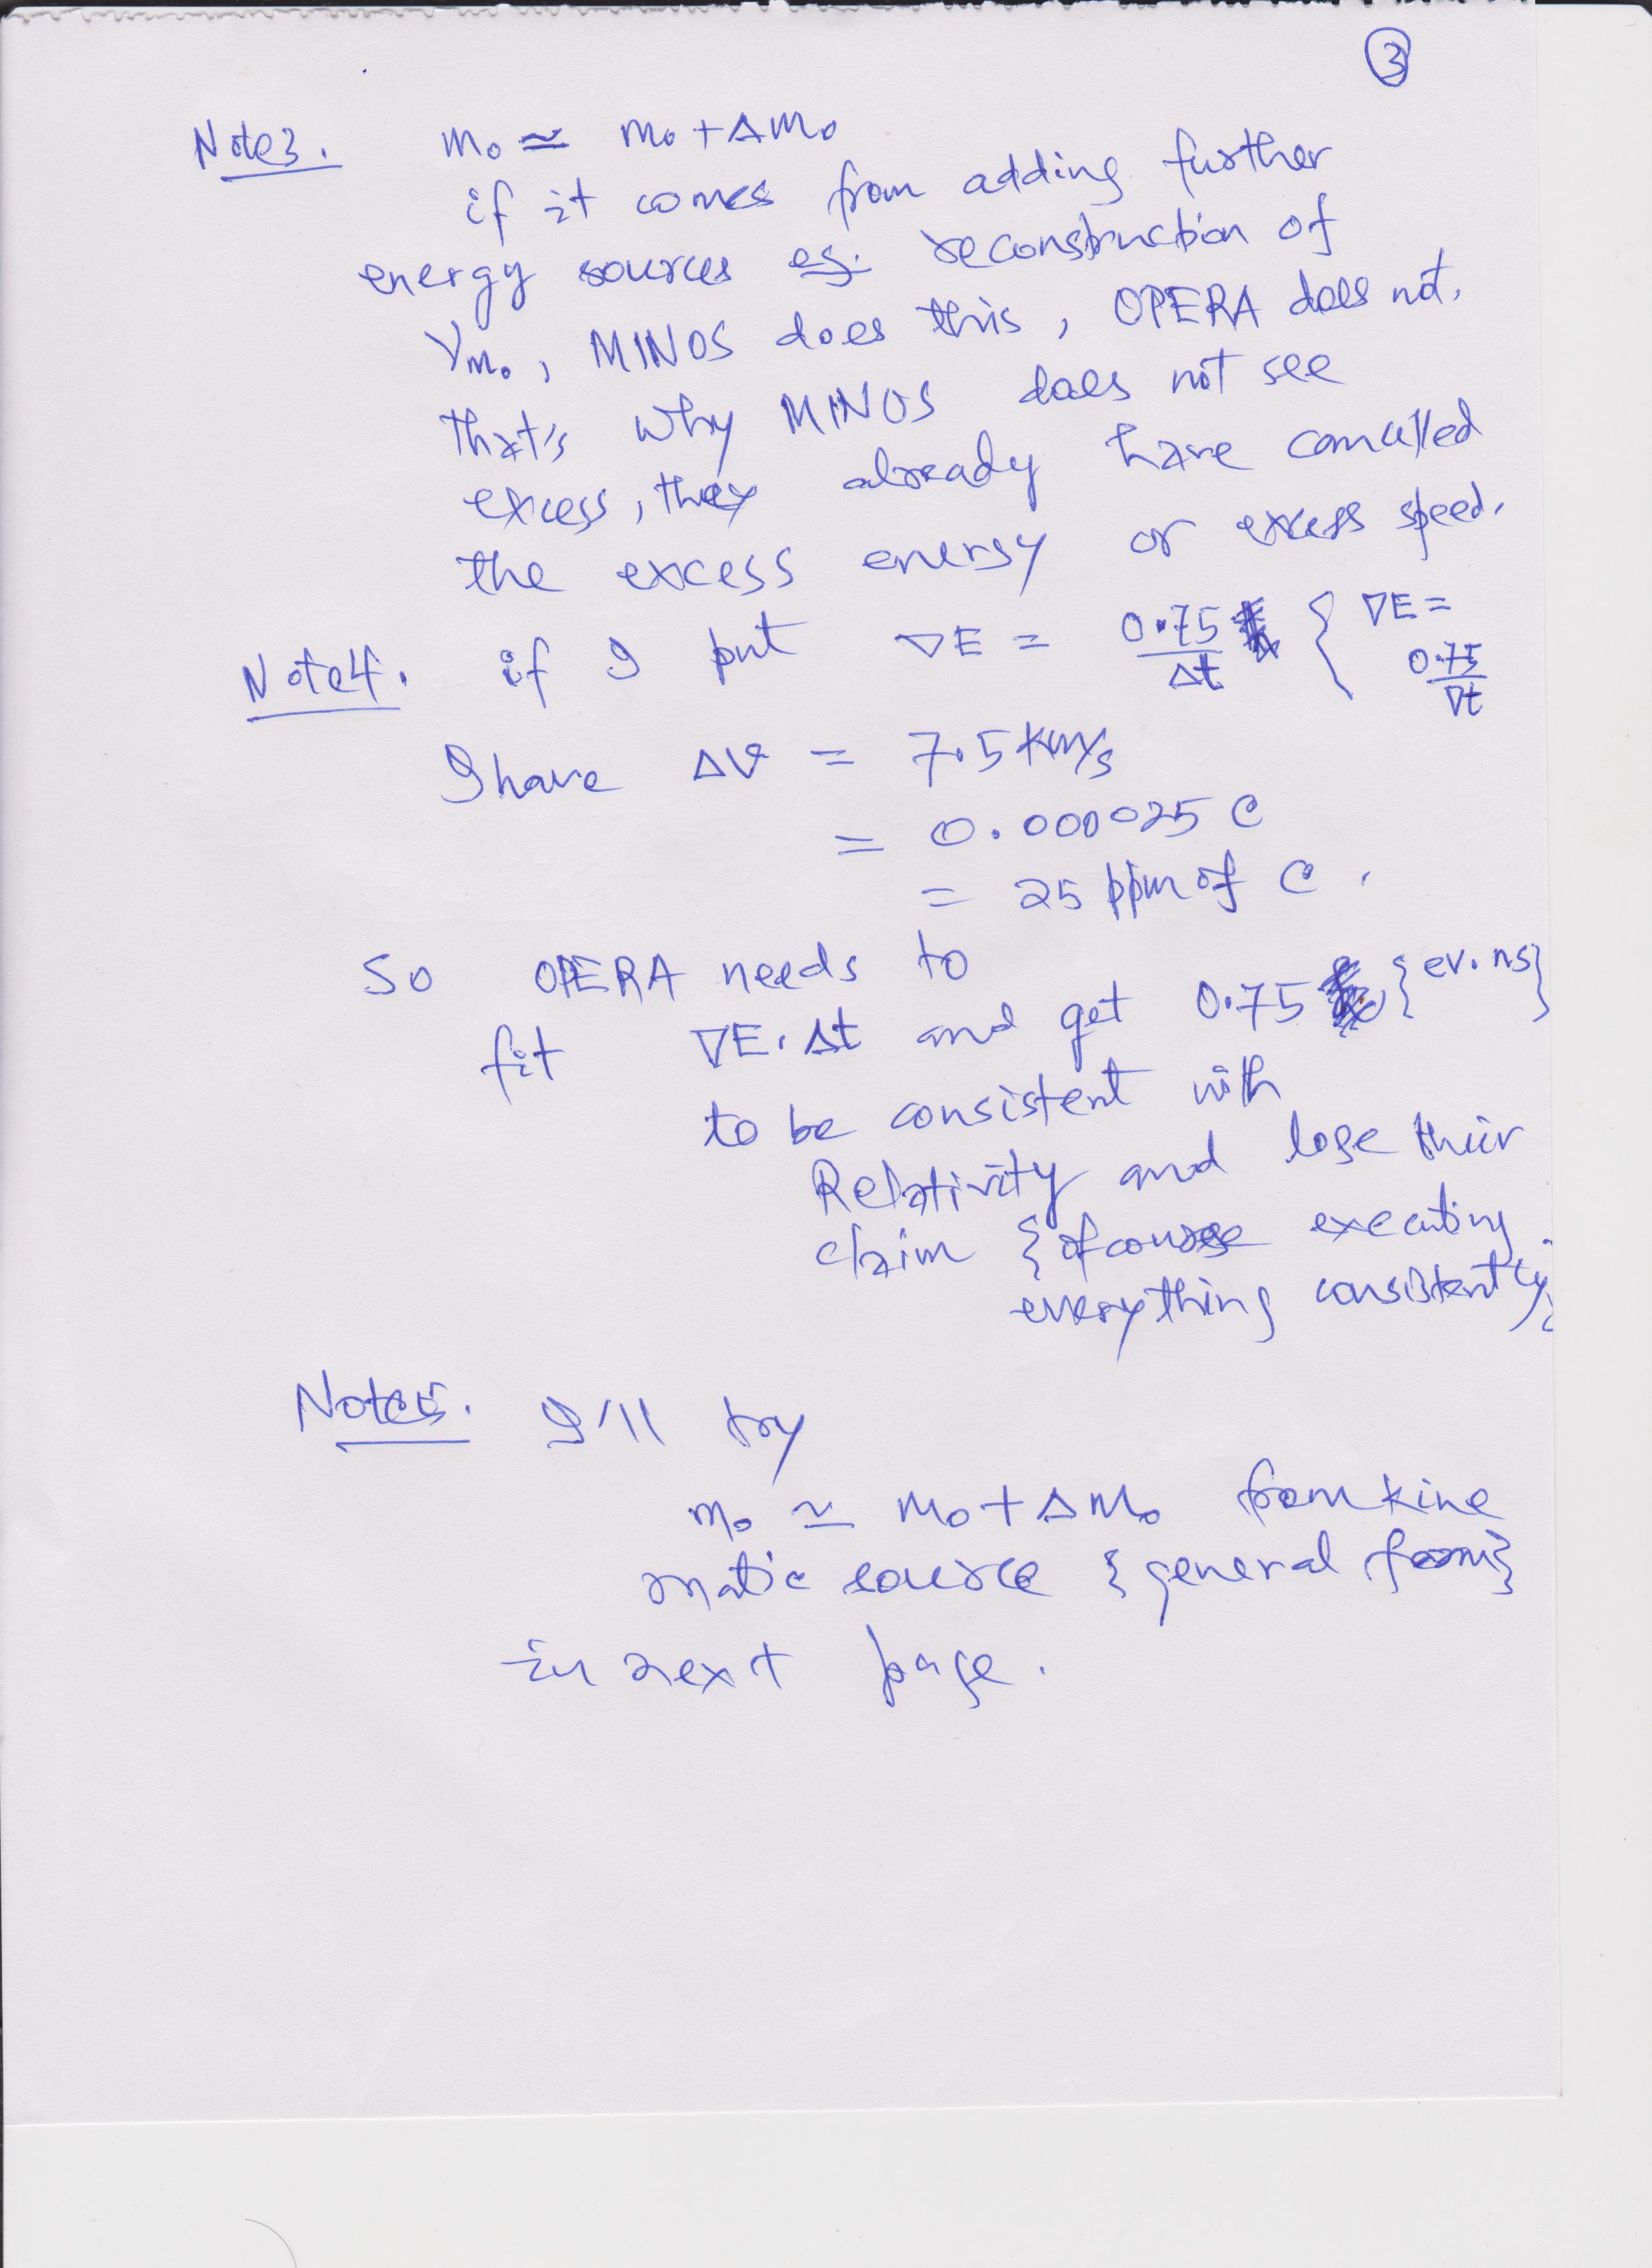 3
Note3. m₀ ≃ m₀ + Δm₀
if it comes from adding further
energy sources eg. reconstruction of
γm₀, MINOS does this, OPERA does not.
that's why MINOS does not see
excess, they already have cancelled
the excess energy or excess speed.
Note4. if I put ∇E = 0.75/Δt { ∇E = 0.75/∇t
I have Δv = 7.5 km/s
= 0.000025 c
= 25 ppm of c.
So OPERA needs to
fit ∇E.Δt and get 0.75 {ev.ns}
to be consistent with
Relativity and lose their
claim {of course executing
everything consistently}
Note5. I'll try
m₀ ≃ m₀ + Δm₀ from kine
matic source {general form}
in next page.